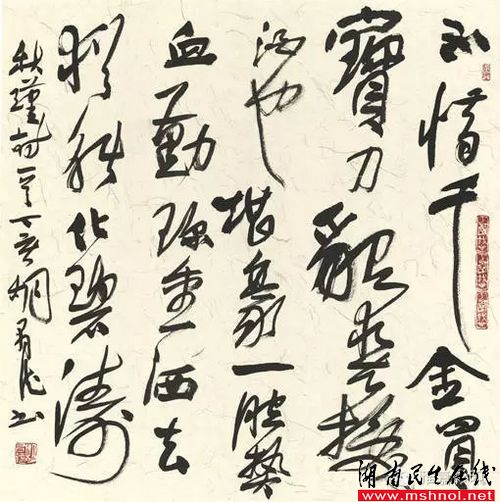 不惜千金買
寶刀貂裘換
酒也堪豪一腔熱
血勤珍重洒去
猶能化碧濤
秋瑾诗一首丁亥胡书
湖南民生在线
www.mshnol.net